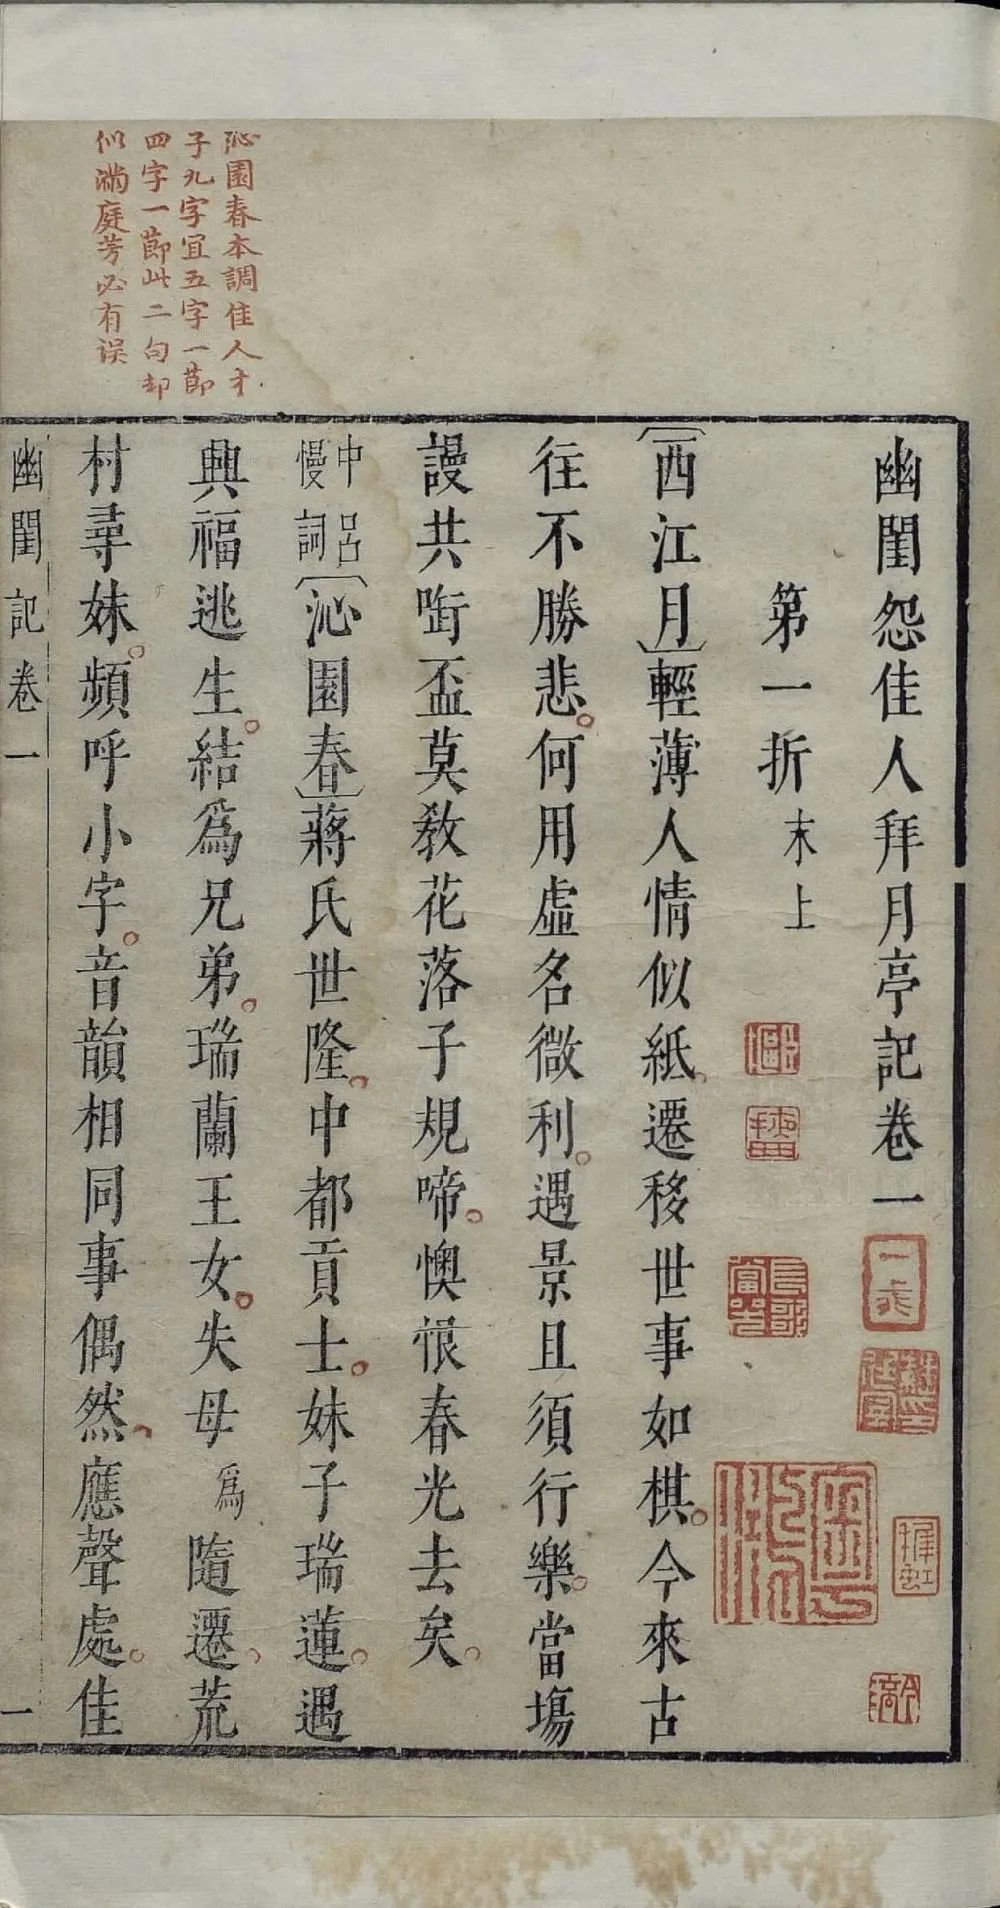 沁園春本調佳人才
子九字宜五字一節
四字一節此二句却
似滿庭芳必有误
幽閨怨佳人拜月亭記卷一
第一折 末上
〔西江月〕輕薄人情似紙遷移世事如棋今來古
往不勝悲何用虛名微利遇景且須行樂當塲
謾共啣盃莫敎花落子規啼懊恨春光去矣
中呂慢詞〔沁園春〕蔣氏世隆中都貢士妹子瑞蓮遇
興福逃生結爲兄弟瑞蘭王女失母爲隨遷荒
村尋妹頻呼小字音韻相同事偶然應聲處佳
幽閨記卷一
一